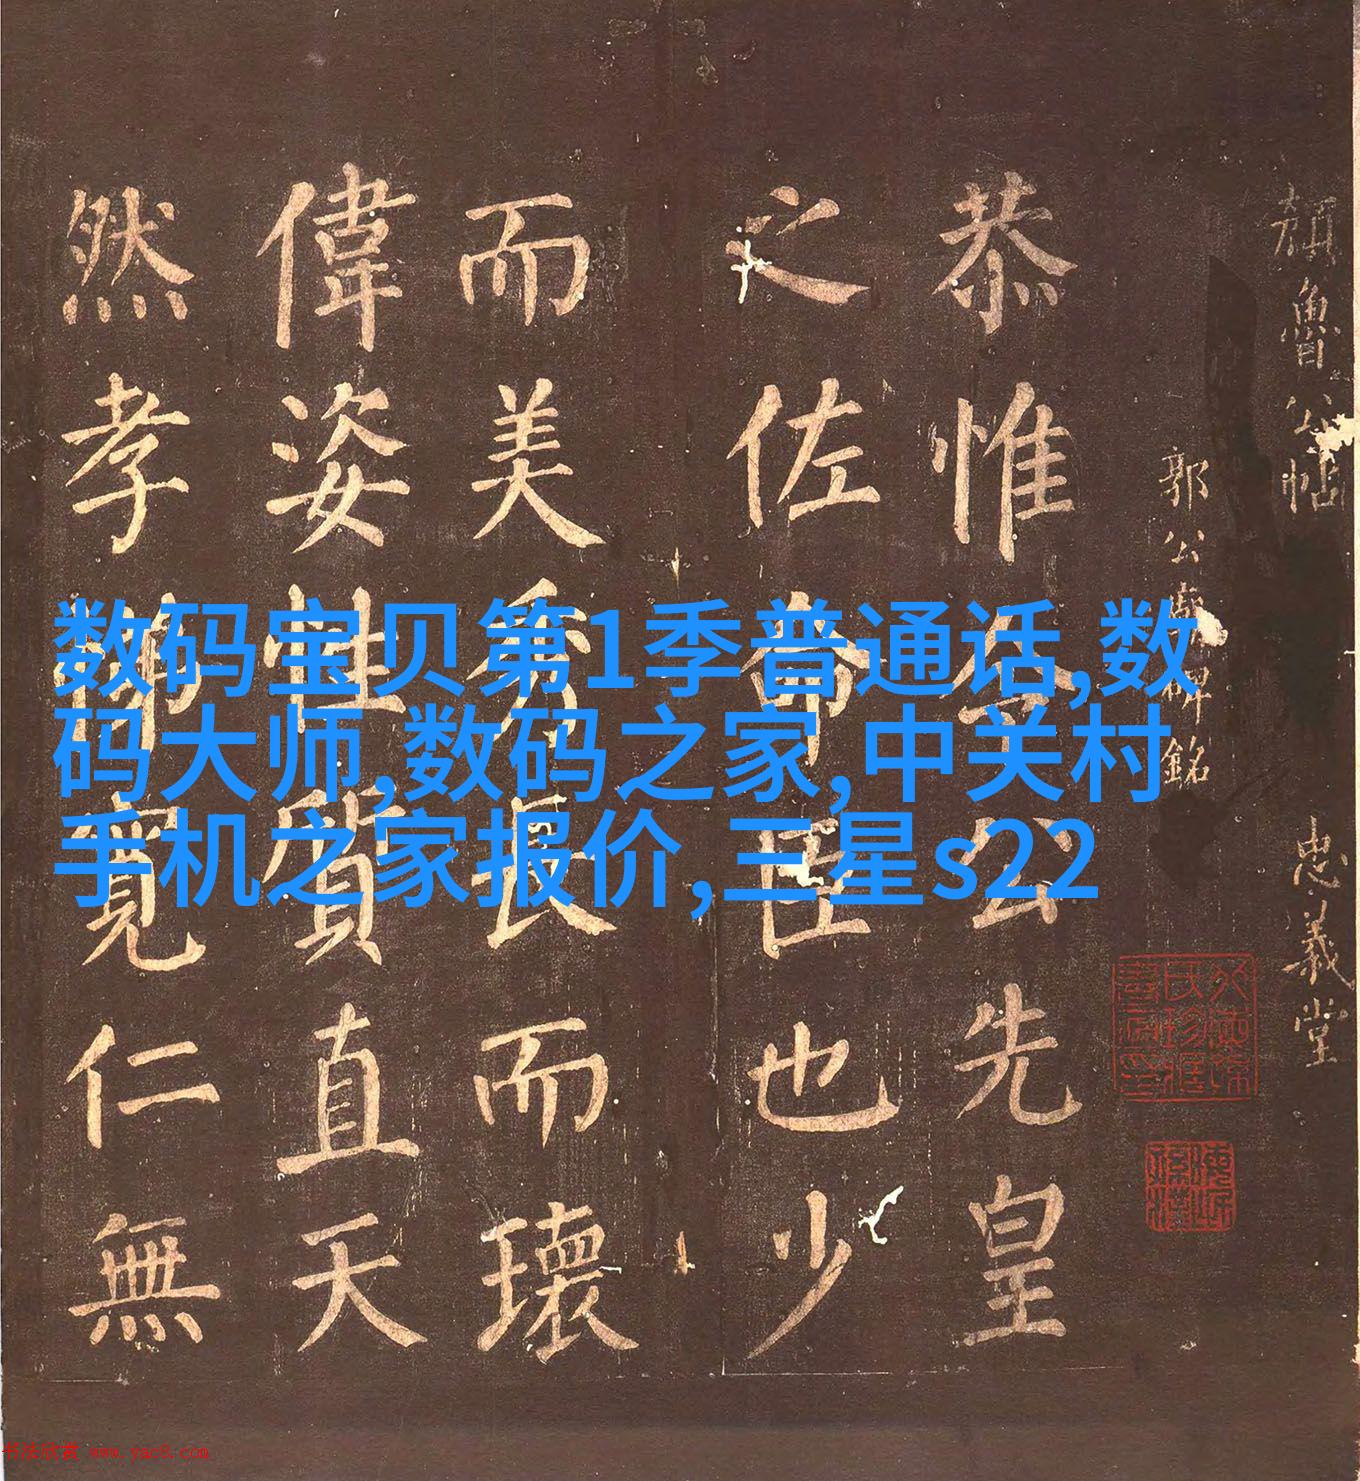 顏魯公帖
忠義堂
郭公廟碑銘
恭惟令公先皇
之佐命臣也少
而美秀長而瓌
偉姿性質直天
然孝悌寬仁無
数码宝贝第1季普通话,数
码大师,数码之家,中关村
手机之家报价,三星s22
书法欣赏 www.yac8.com